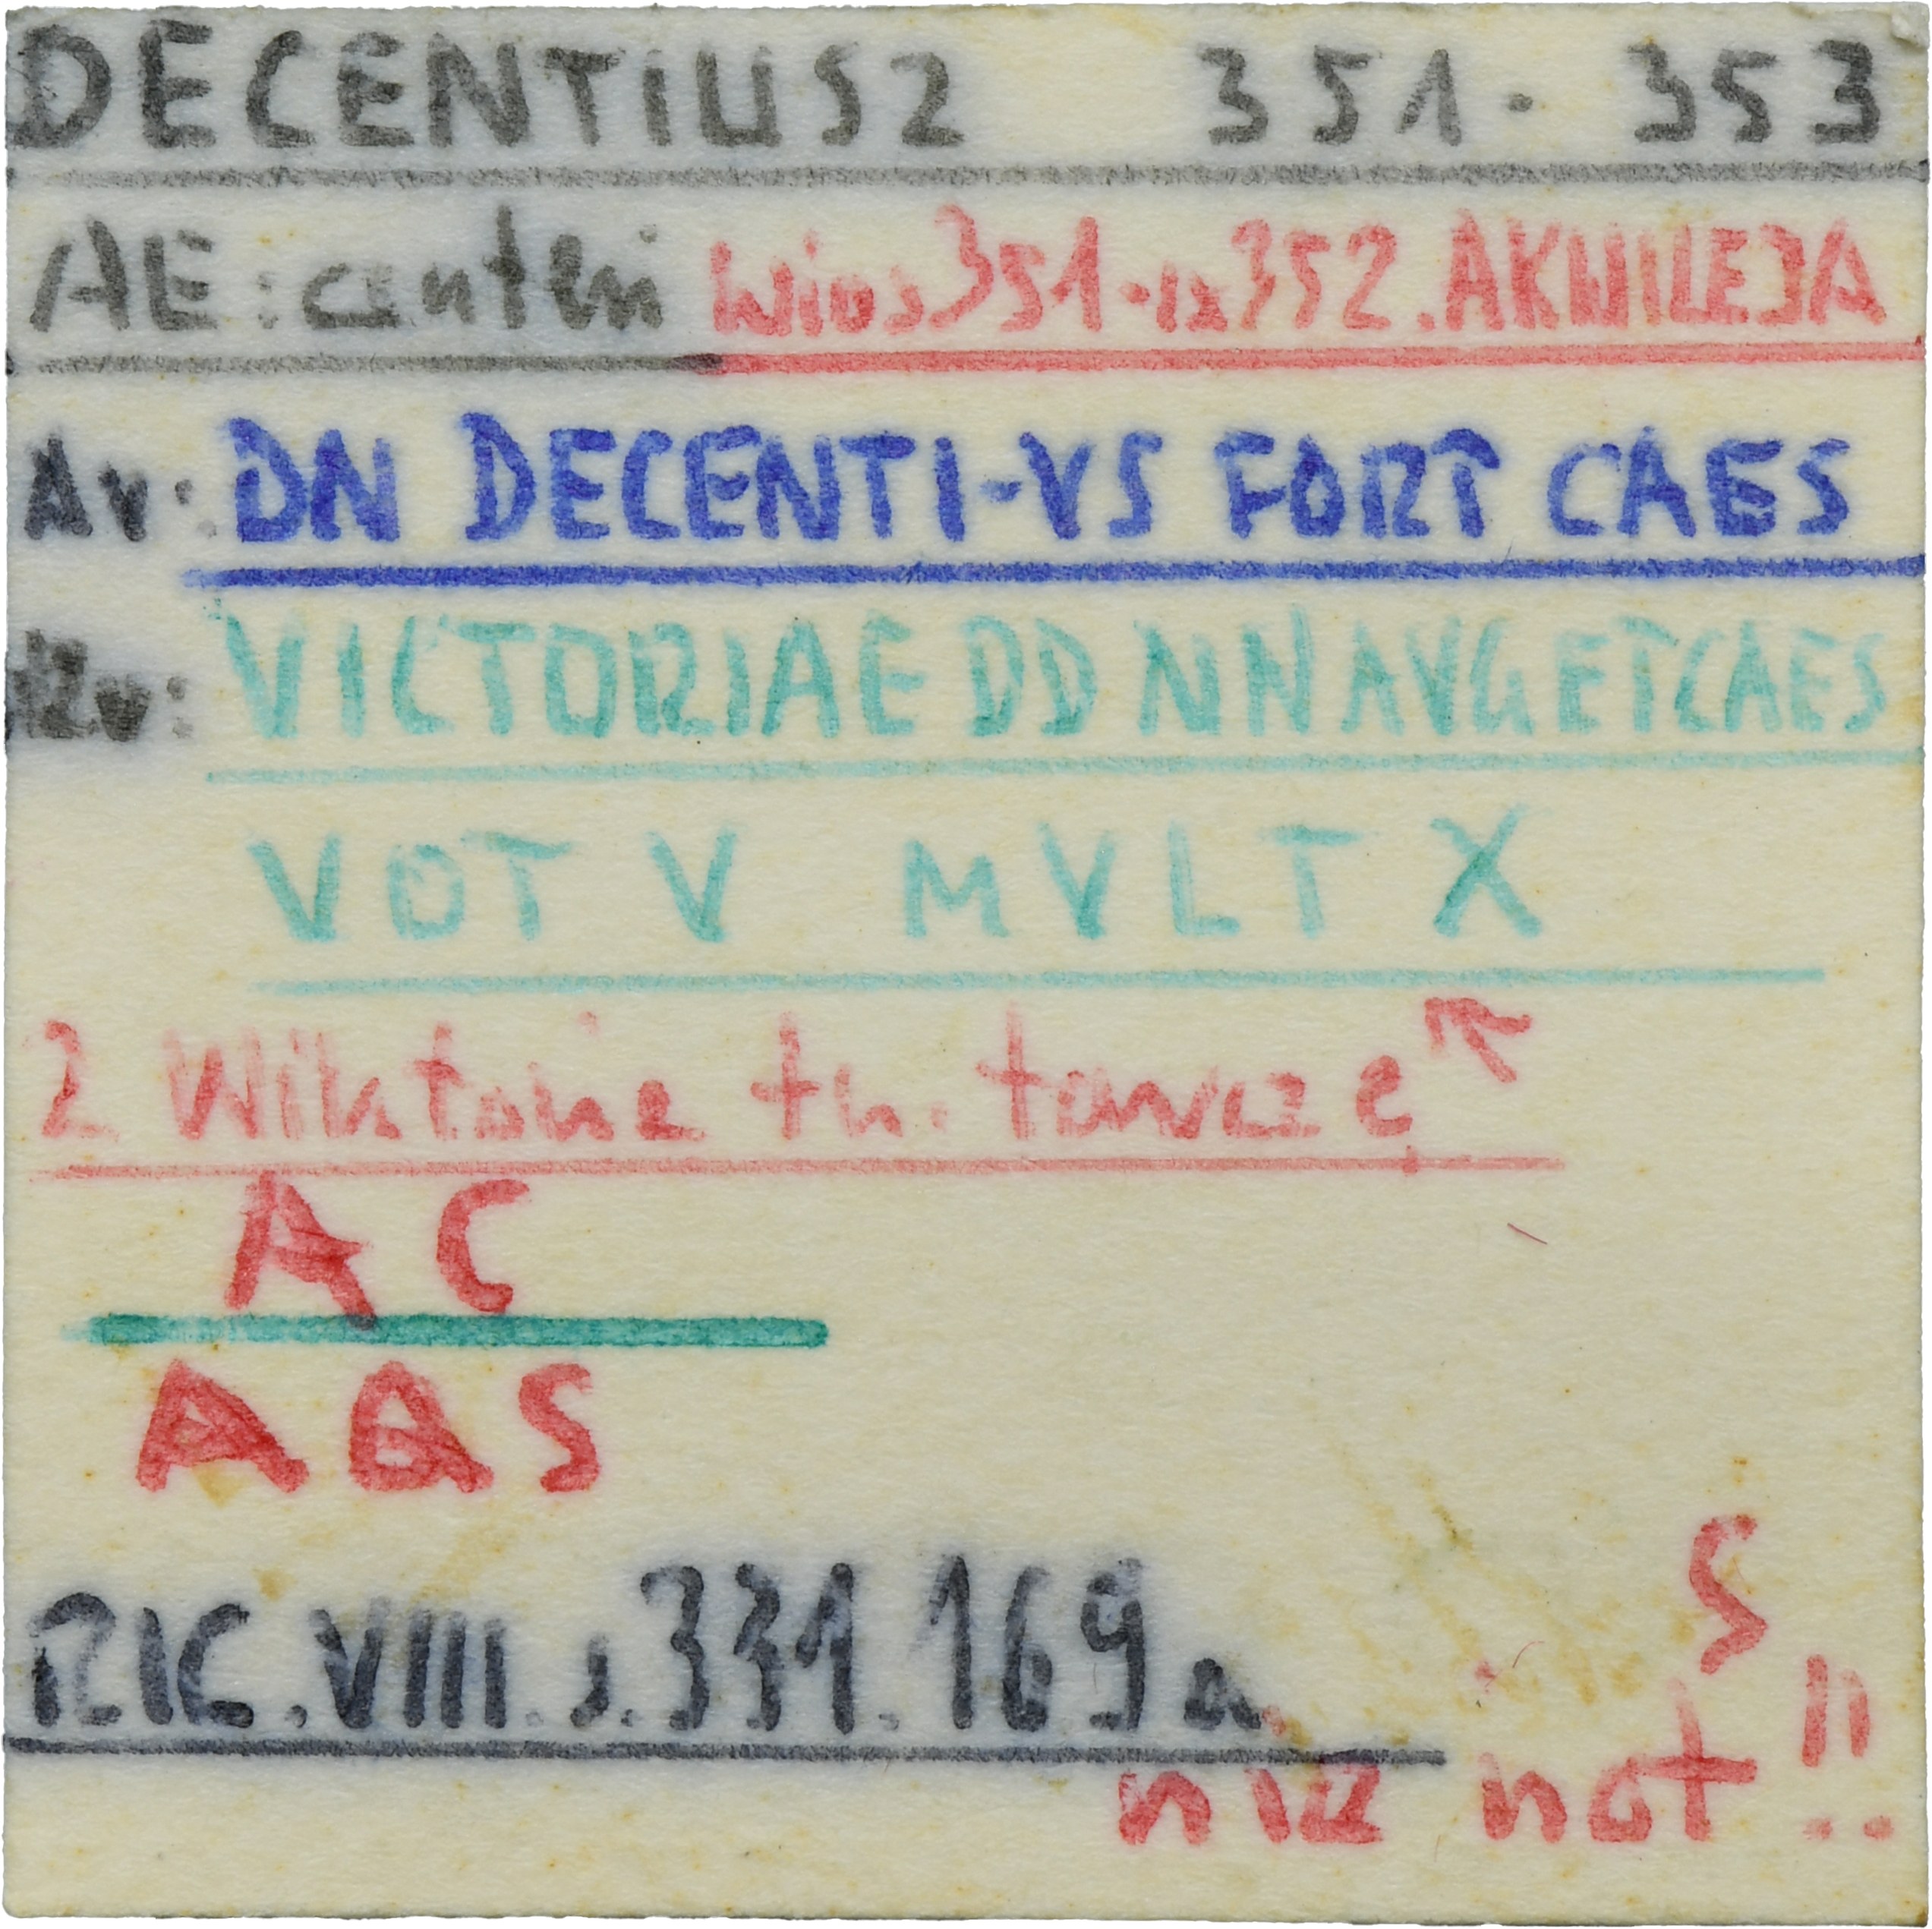 DECENTIUS2 351-353
AE: centen wios351-ix352.AKWILEJA
Av: DN DECENTI-VS FORT CAES
Rv: VICTORIAE DD NN AVG ET CAES
VOT V MVLT X
2 Wiktorie tn. tarczę
A C
AQS
RIC.VIII.s.331.169a
S
nie not!!